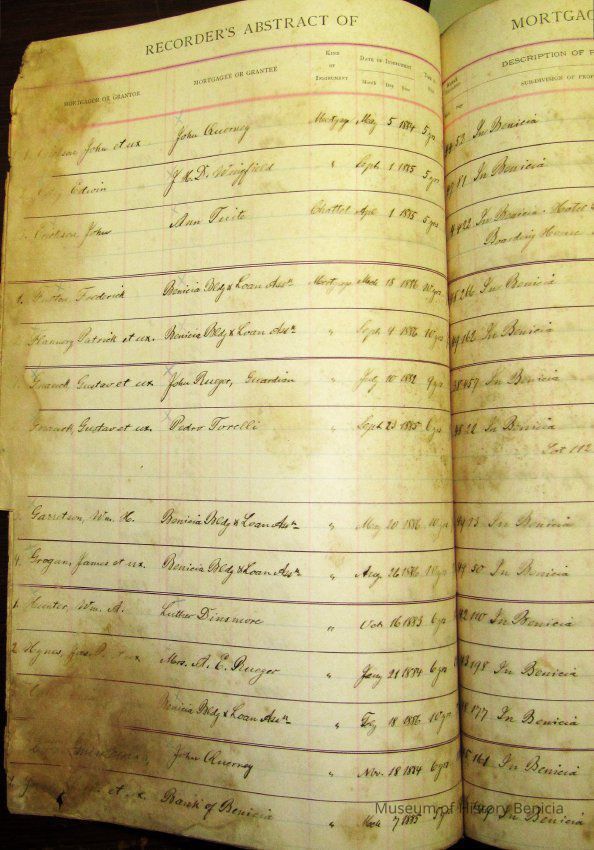 RECORDER'S ABSTRACT OF MORTGAG
MORTGAGOR OR GRANTOR MORTGAGEE OR GRANTEE KIND OF INSTRUMENT DATE OF INSTRUMENT Month Day Year DESCRIPTION OF P
Page SUBDIVISION OF PROP
John et ux John Querney Mortgage May 5 1884 5 yrs 52 In Benicia
Edwin J. H. D. Wingfield " Sept. 1 1885 5 yrs 11 In Benicia
Erickson John Ann Tuite Chattel Apl. 1 1885 5 yrs 422 In Benicia - Hotel &
Boarding House
Frederick Benicia Bldg & Loan Assn Mortgage Mch 15 1886 10 yrs 266 In Benicia
Flannery Patrick et ux. Benicia Bldg & Loan Assn " Sept. 4 1886 10 yrs 162 In Benicia
Gnauck, Gustav et ux John Rueger, Guardian " July 10 1882 9 yrs 457 In Benicia
Gnauck, Gustav et ux. Pedro Torelli " Sept. 23 1885 6 yrs 22 In Benicia
Lot 112
3. Garretson, Wm. H. Benicia Bldg & Loan Assn " May 20 1886 10 yrs 13 In Benicia
4. Grogan, James et ux. Benicia Bldg & Loan Assn " Aug 26 1886 10 yrs 50 In Benicia
1. Hunter, Wm. A. Luther Dinsmore " Oct. 16 1883 6 yrs 110 In Benicia
2. Hynes, Jas. P. et ux Mrs. A. E. Rueger " Jany 21 1884 6 yrs 198 In Benicia
Benicia Bldg & Loan Assn " Feby 18 1886 10 yrs 177 In Benicia
John Querney " Nov. 18 1884 6 yrs 161 In Benicia
et ux. Bank of Benicia " Mch 7 1885 In Benicia
Museum of History Benicia